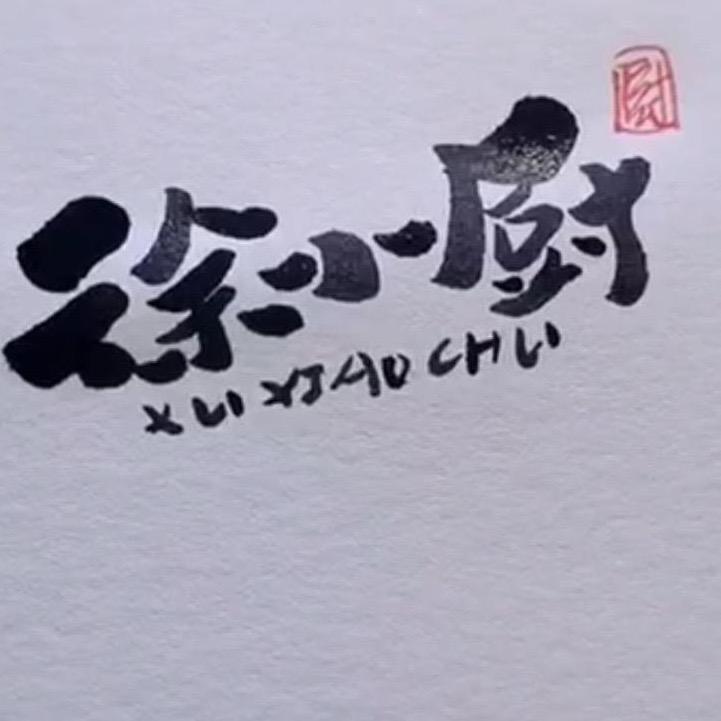 徐小厨
XU XIAO CHU